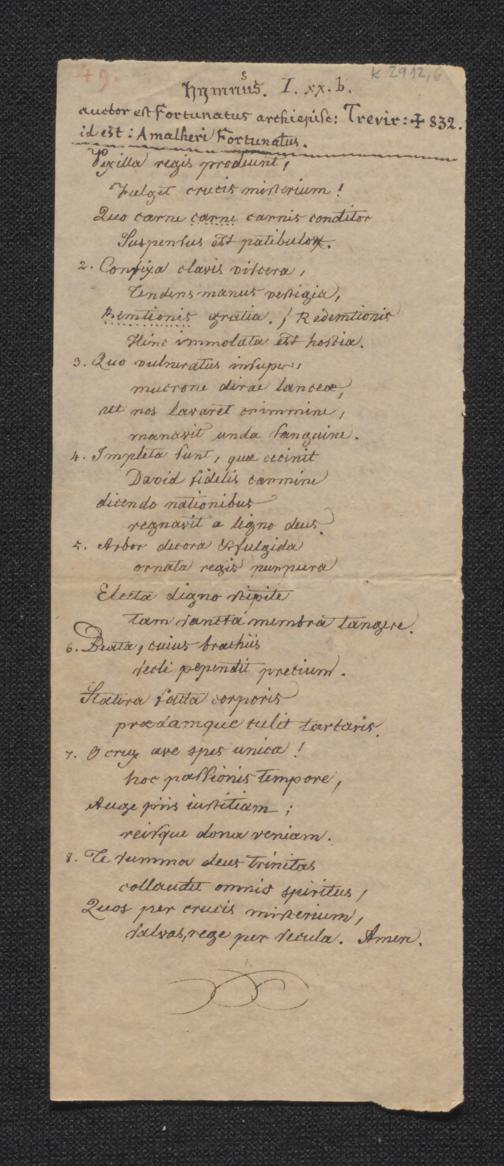 49.
K 2912,6
hymnus. I. xx. b.
auctor est Fortunatus archiepisc: Trevir: ✝ 832.
id est: Amalheri Fortunatus.
Vexilla regis prodeunt,
Fulget crucis misterium!
Quo carne carne carnis conditor
Suspensus est patibulo.
2. Confixa clavis viscera,
Tendens manus vestigia,
Remtionis gratia. / Redemtionis
Hinc immolata est hostia.
3. Quo vulneratus insuper,
mucrone dirae lanceæ,
ut nos lavaret crimmine,
manavit unda sanguine.
4. Impleta sunt, quæ cecinit
David fidelis carmine
dicendo nationibus
regnavit a ligno deus.
5. Arbor decora & fulgida
ornata regis purpura
Electa digno stipite
tam sancta membra tangere.
6. Beata, cuius brachiis
secli pependit pretium.
Statera facta corporis
prædamque tulit tartaris.
7. O crux ave spes unica!
hoc passionis tempore,
Auge piis iustitiam;
reisque dona veniam.
8. Te summa deus trinitas
collaudet omnis spiritus,
Quos per crucis misterium,
salvas, rege per secula. Amen.